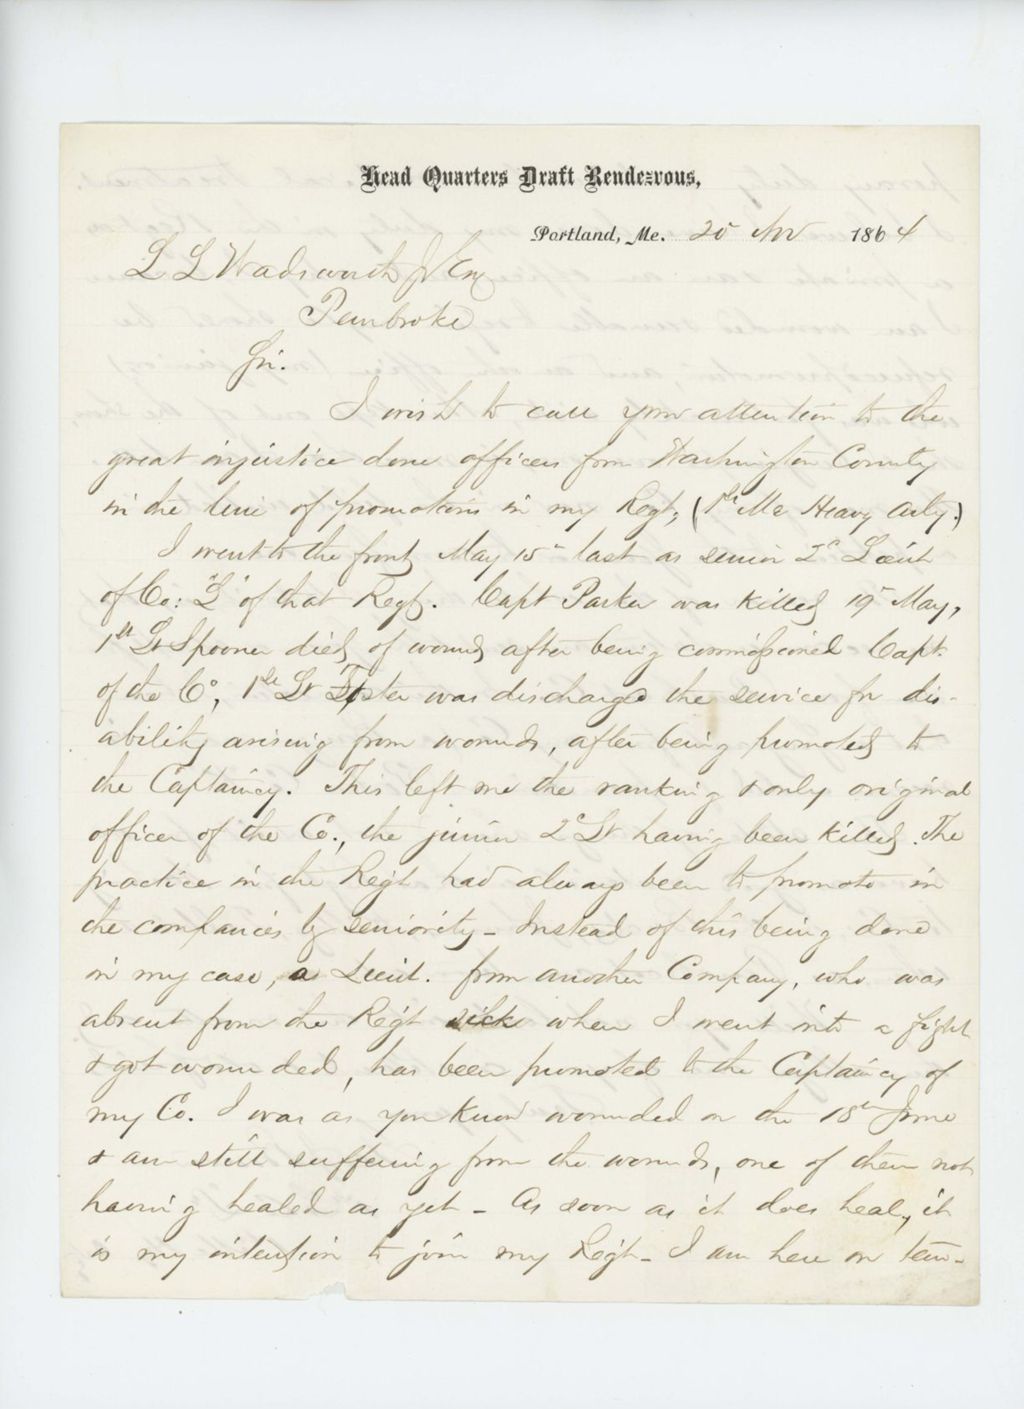 Head Quarters Draft Rendezvous,
Portland, Me. 25 Nov 1864
L L Wadsworth Jr Esq
Pembroke
Sir.
I wish to call your attention to the
great injustice done officers from Washington County
in the line of promotions in my Regt, (1st Me Heavy Arty.)
I went to the front May 15th last as senior 2d Lieut
of Co: "L" of that Regt. Capt Parker was killed 19 May,
1st Lt Spooner died of wounds after being commissioned Capt.
of the Co, 1st Lt Foster was discharged the service for dis-
ability arising from wounds, after being promoted to
the Captaincy. This left me the ranking & only original
officer of the Co., the junior 2d Lt having been killed. The
practice in the Regt had always been to promote in
the companies by seniority - Instead of this being done
in my case, a Lieut. from another Company, who was
absent from the Regt sick when I went into a fight
& got wounded, has been promoted to the Captaincy of
my Co. I was as you know wounded on the 18th June
& am still suffering from the wounds, one of them not
having healed as yet - As soon as it does heal, it
is my intention to join my Regt - I am here on tem-